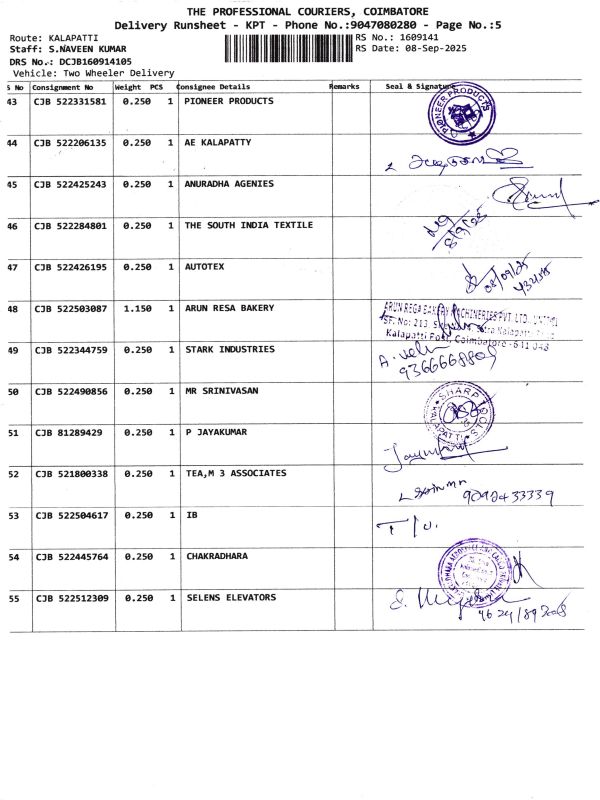 THE PROFESSIONAL COURIERS, COIMBATORE
Delivery Runsheet - KPT - Phone No.:9047080280 - Page No.:5
Route: KALAPATTI RS No.: 1609141
Staff: S.NAVEEN KUMAR RS Date: 08-Sep-2025
DRS No.: DCJB160914105
Vehicle: Two Wheeler Delivery
S No Consignment No Weight PCS Consignee Details Remarks Seal & Signature
43 CJB 522331581 0.250 1 PIONEER PRODUCTS PIONEER PRODUCTS
44 CJB 522206135 0.250 1 AE KALAPATTY
45 CJB 522425243 0.250 1 ANURADHA AGENIES
46 CJB 522284801 0.250 1 THE SOUTH INDIA TEXTILE 8/9/25
47 CJB 522426195 0.250 1 AUTOTEX 08/09/25
48 CJB 522503087 1.150 1 ARUN RESA BAKERY ARUN REGA BAKERY MACHINERIES PVT. LTD.
SF. No: 213
Kalapatti Post, Coimbatore - 641 048
49 CJB 522344759 0.250 1 STARK INDUSTRIES A. velu
50 CJB 522490856 0.250 1 MR SRINIVASAN SHARP TOOLS KALAPATTI
51 CJB 81289429 0.250 1 P JAYAKUMAR
52 CJB 521800338 0.250 1 TEA,M 3 ASSOCIATES 9092433339
53 CJB 522504617 0.250 1 IB
54 CJB 522445764 0.250 1 CHAKRADHARA
55 CJB 522512309 0.250 1 SELENS ELEVATORS